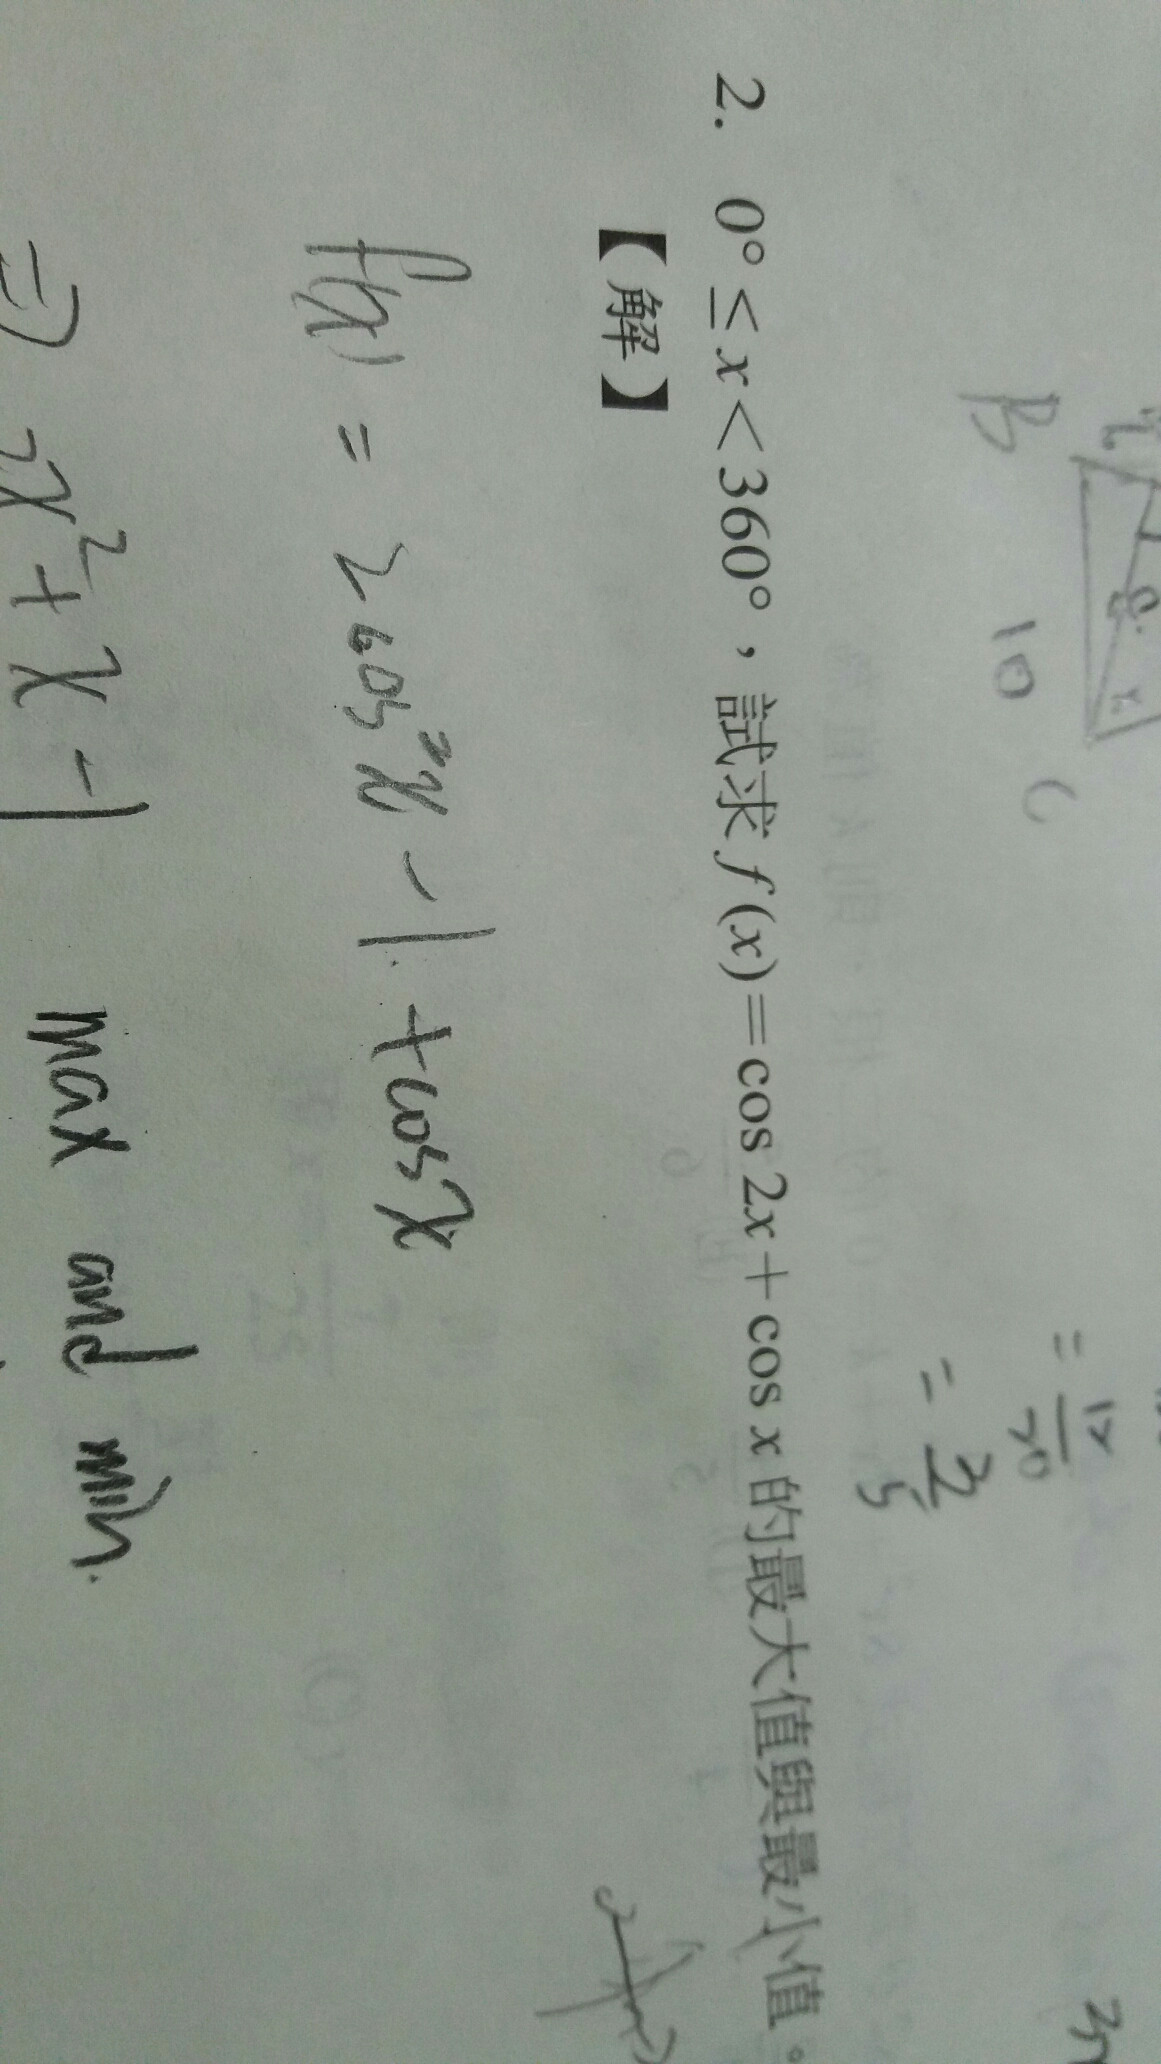 B
10
C
= 12/20
= 3/5
2. 0° ≤ x < 360°,試求 f(x)=cos 2x+cos x 的最大值與最小值。
【解】
f(x) = 2cos²x - 1 + cosx
⇒ 2x² + x - 1 max and min.